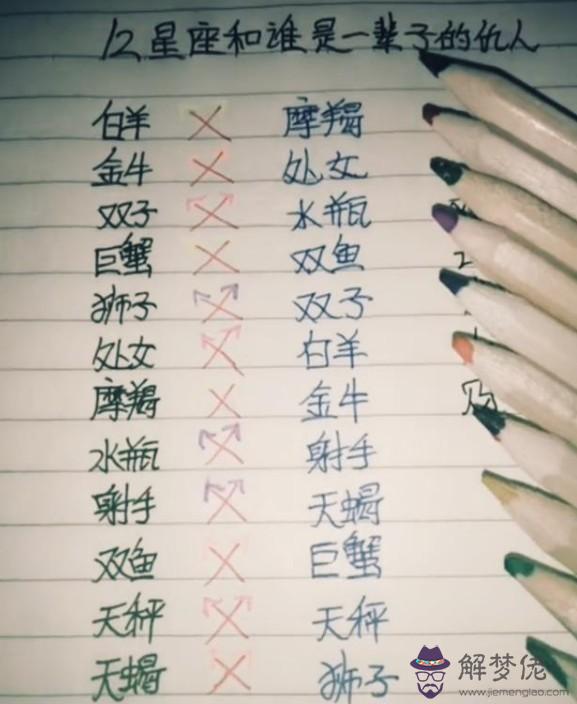 12星座和谁是一辈子的仇人
白羊 × 摩羯
金牛 × 处女
双子 × 水瓶
巨蟹 × 双鱼
狮子 × 双子
处女 × 白羊
摩羯 × 金牛
水瓶 × 射手
射手 × 天蝎
双鱼 × 巨蟹
天秤 × 天秤
天蝎 × 狮子
解梦佬
www.jiemenglao.com